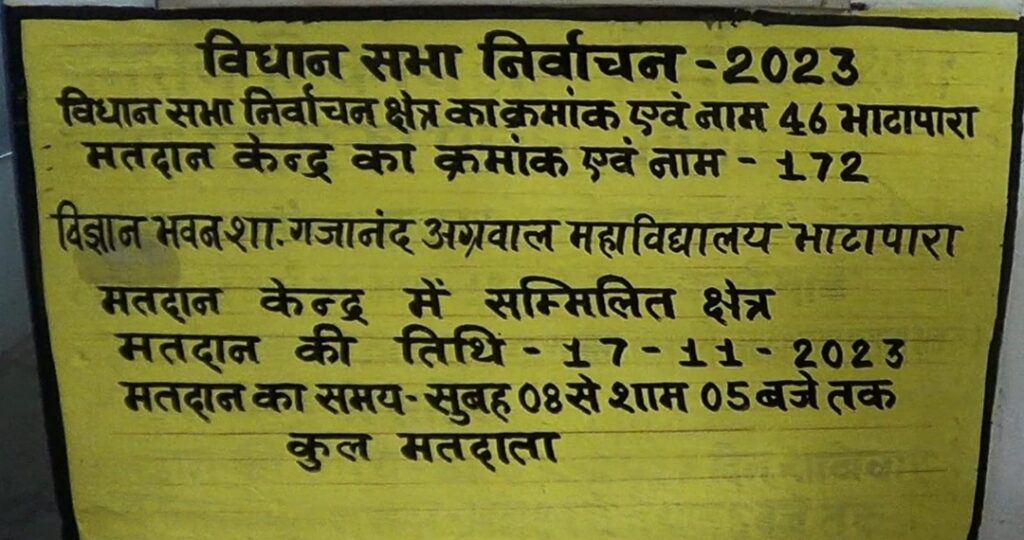 विधान सभा निर्वाचन - 2023
विधान सभा निर्वाचन क्षेत्र का क्रमांक एवं नाम 46 भाटापारा
मतदान केन्द्र का क्रमांक एवं नाम - 172
विज्ञान भवन शा. गजानंद अग्रवाल महाविद्यालय भाटापारा
मतदान केन्द्र में सम्मिलित क्षेत्र
मतदान की तिथि - 17 - 11 - 2023
मतदान का समय - सुबह 08 से शाम 05 बजे तक
कुल मतदाता